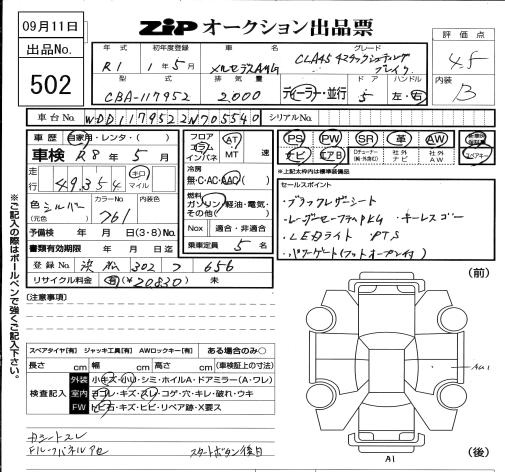 09月11日
ZIP オークション出品票
出品No.
502
年式 初年度登録 車名 グレード
R1 1年5月 メルセデスAMG CLA45 4マチックシューティングブレイク
型式 排気量 ドア ハンドル
CBA-117952 2,000 ディーラー・並行 5 左・右
評価点
4.5
内装
B
車台No. WDD1179522N705540 シリアルNo.
車歴 自家用・レンタ・( )
車検 R8年5月
走行 49,354 キロ マイル
色(元色) シルバー カラーNo. 761 内装色
予備検 年 月 日(3・8)No.
書類有効期限 年 月 日迄
フロア コラム インパネ AT MT 速
冷房 無・C・AC・AAC
燃料 ガソリン・軽油・電気・その他( )
Nox 適合・非適合
乗車定員 5 名
登録No. 浜松 302 フ 656
リサイクル料金 有(¥20830) 未
PS PW SR 革 AW 新車時保証書
ナビ エアB Dチューナー(純・外含む) 社外ナビ 社外AW スペアキー
*上記太枠内は標準装備品
セールスポイント
・ブラックレザーシート
・レーザーセーフティPKG ・キーレスゴー
・LEDライト PTS
・パワーゲート(フットオープン付)
※ご記入の際はボールペンで強くご記入下さい。
(注意事項)
スペアタイヤ[有] ジャッキ工具[有] AWロックキー[有] ある場合のみ○
長さ cm 幅 cm 高さ cm (車検証上の寸法)
検査記入
外装 小キズ・小U・シミ・ホイルA・ドアミラー(A・ワレ)
室内 ヨゴレ・キズ・スレ・コゲ・穴・キレ・破れ・ウキ
FW トビ石・キズ・ヒビ・リペア跡・X要ス
カシートスレ
Fルーフパネルアセ スタートボタン後日
(前)
AU1
A1
(後)